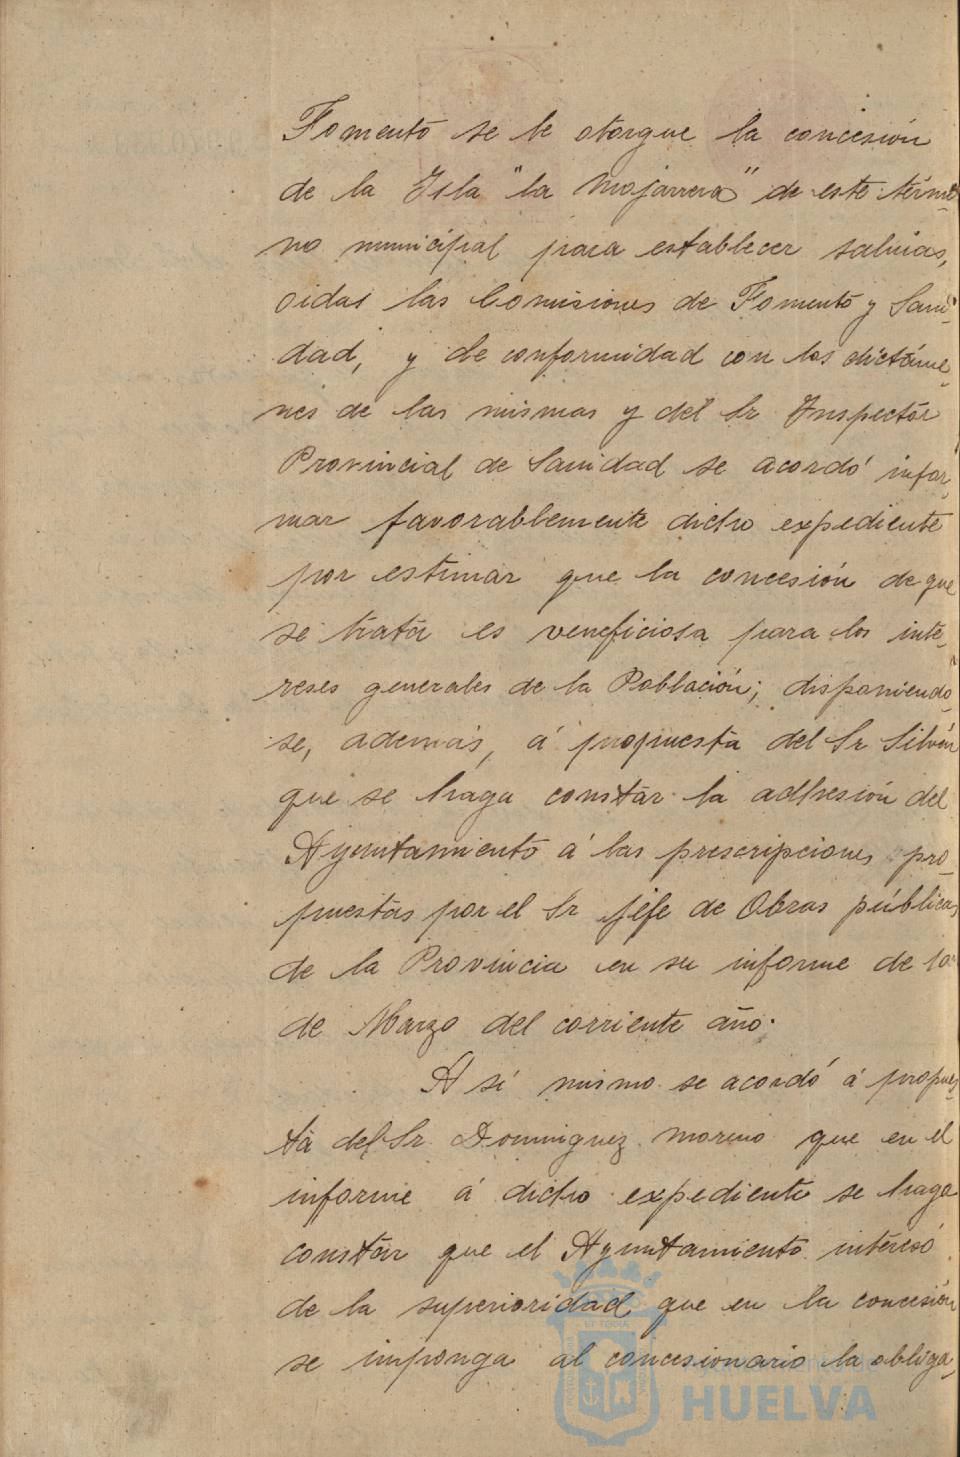 Fomento se le otorgue la concesión
de la Isla "la Mojarrera" de este térmi-
no municipal para establecer salinas,
oidas las Comisiones de Fomento y Sani-
dad, y de conformidad con los dictáme-
nes de las mismas y del Sr Inspector
Provincial de Sanidad se acordó infor-
mar favorablemente dicho expediente
por estimar que la concesión de que
se trata es veneficiosa para los inte-
reses generales de la Población; disponiendo-
se, además, á propuesta del Sr Silván
que se haga constar la adhesión del
Ayuntamiento á las prescripciones pro-
puestas por el Sr Jefe de Obras públicas
de la Provincia en su informe de 10
de Marzo del corriente año.
A sí mismo se acordó á propues-
ta del Sr. Dominguez Moreno que en el
informe á dicho expediente se haga
constar que el Ayuntamiento interesó
de la superioridad que en la concesión
se imponga al concesionario la obliga-
HUELVA